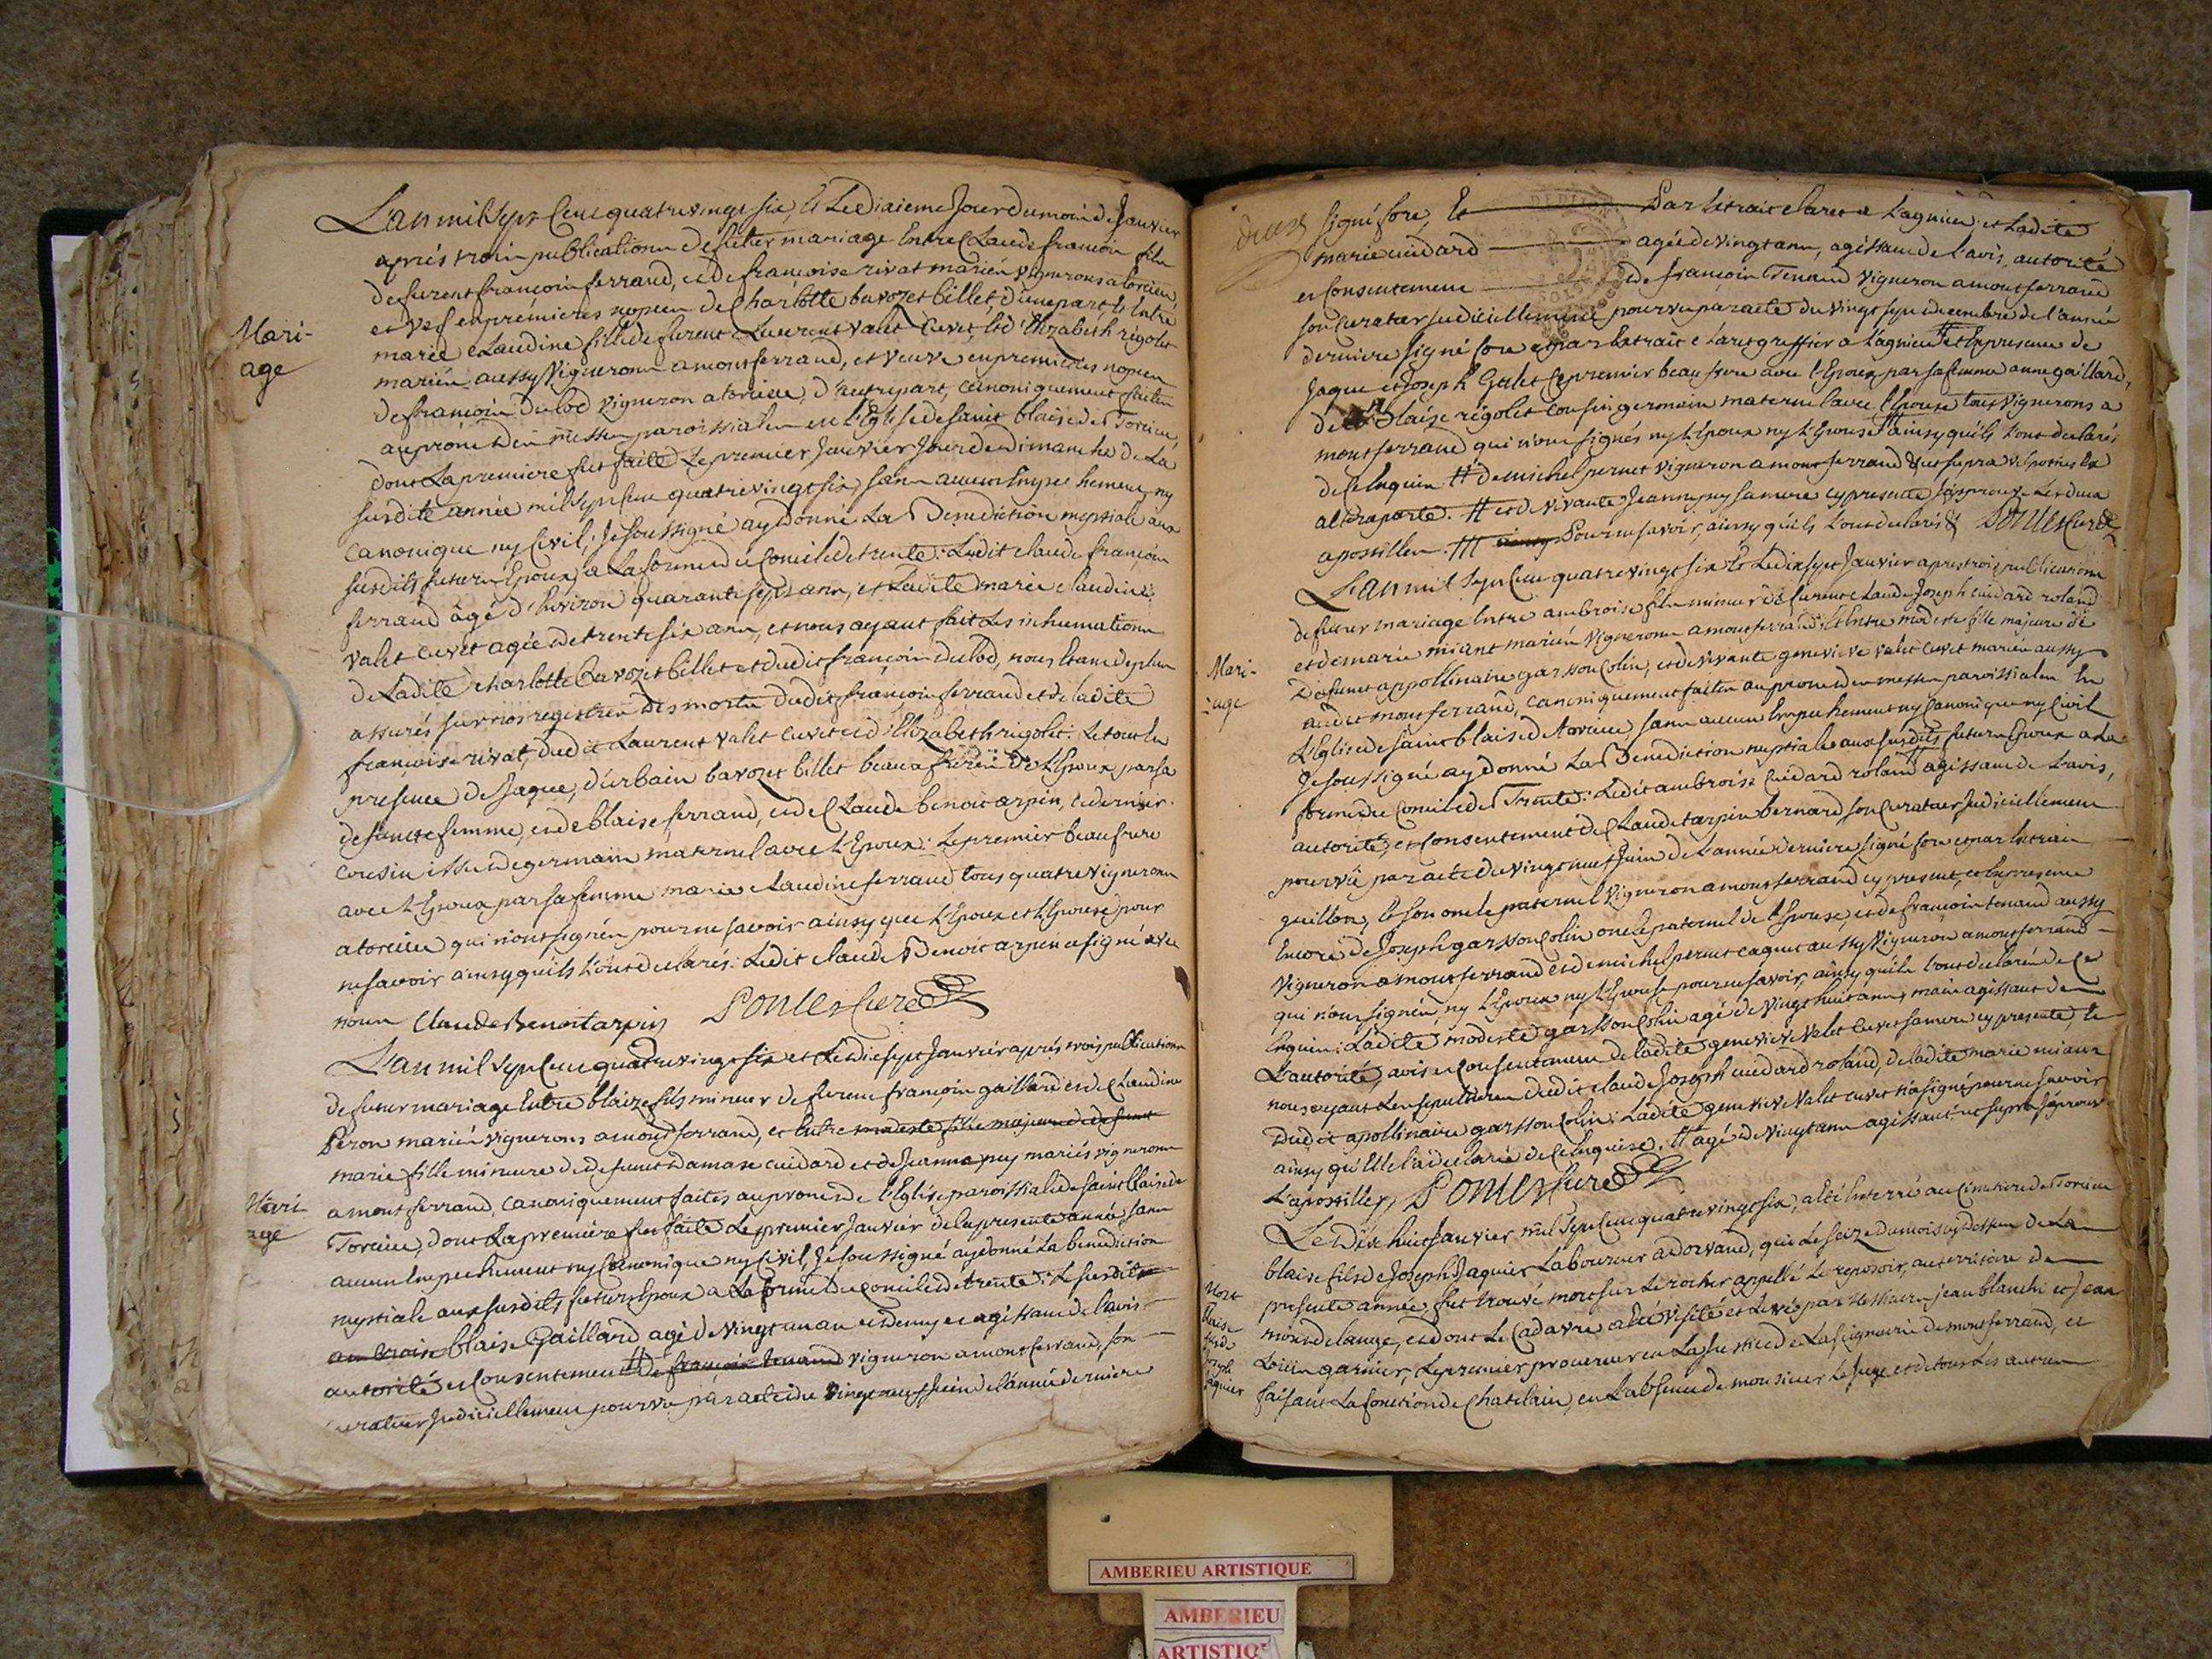 Mari-
age
L'an mil sept cent quatre vingt six, et le dixieme jour du mois de janvier
après trois publications de futur mariage entre Claude françois fils
de furent françois ferrand, et de françoise rivat mariés vignerons a torcieu,
et veuf en premières nopces de Charlotte bavozet billet, d'une part, et entre
marie claudine fille de furent Laurent valet cuvet, et d'Elizabeth rigolet
mariés aussy vignerons a montferrand, et veuve en premieres nopces
de françois dulod vigneron a torcieu, d'autre part, canoniquement faites
au prône des messes paroissiales en l'Eglise de saint blaise de Torcieu,
dont la premiere fut faite le premier janvier jour de dimanche de la
susdite année mil sept cent quatre vingt six, sans aucun empechement ny
canonique ny civil, je soussigné ay donné la Benediction nuptiale aux
susdits futurs Epoux, a la forme du Concile de trente: Ledit claude françois
ferrand âgé d'environ quarante sept ans, et ladite marie claudine
valet cuvet agée de trente six ans, et nous ayant fait les inhumations
de ladite charlotte bavozet billet et dudit françois dulod, nous etant de plus
assurés sur nos registres des morts dudit françois ferrand et de ladite
françoise rivat, dudit Laurent valet cuvet et d'Elizabeth rigolet. Le tout en
presence de jaque, d'urbain bavozet billet beaux freres de l'Epoux par sa
defuncte femme, et de blaise ferrand, et de Claude benoit arpin, ce dernier
cousin issu de germain maternel avec l'Epoux: Le premier beau frere
avec l'Epoux par sa femme marie claudine ferrand tous quatre vignerons
a torcieu qui n'ont signés pour ne savoir ainsy que l'Epoux et l'Epouse pour
ne savoir ainsy qu'ils l'ont declarés: Ledit claude Benoit arpin a signé avec
nous Claude Benoit arpin
L'an mil sept cent quatre vingt six et le dix sept janvier après trois publications
de futur mariage entre blaize fils mineur de furent françois gaillard et de Claudine
Peron mariés vignerons a montferrand, et entre modeste fille majeure de defunt
marie fille mineure de defunct damase cuidard et de jeanne ney mariés vignerons
Mari-
age
a montferrand, canoniquement faites au prones de l'Eglise paroissiale de saint blaise de
Torcieu, dont la premiere fut faite le premier janvier de la presente année, sans
aucun empechement ny Canonique ny Civil, je soussigné ay donné la benediction
nuptiale aux susdits futurs Epoux a la forme du Concile de trente: Le susdit
ambroise blaise Gaillard agé de vingt un an et demy et agissant de l'avis
autorité et consentement # de françois tenand vigneron a montferrand, son
curateur judiciellement pourvu par acte du vingt neuf juin de l'année derniere
signé fore, et par Extrait claret a Lagnieu: et Ladite
marie cuidard agée de vingt ans, agissant de l'avis, autorité
et Consentement de françois Tenand vigneron a montferrand
son curateur judiciellement pourvu par acte du vingt sept decembre de l'année
derniere signé fore et par Extrait claret greffier a Lagnieu # et En presence de
jaque et joseph Galet, Ce premier beau frere avec l'Epoux par sa femme anne gaillard,
de Blaise rigolet cousin germain maternel avec l'Epouse tous vignerons a
montferrand qui n'ont signés ny l'Epoux ny l'Epouse ainsy qu'ils l'ont declarés
de ce Enquis # de michel pernet vigneron a montferrand
# et de vivante jeanne ney sa mere cy presente j'approuve les deux
apostilles ### Pour ne savoir, ainsy qu'ils l'ont declarés
L'an mil sept cent quatre vingt six et le dix sept janvier apres trois publications
de futur mariage entre ambroise fils mineur de furent claude joseph cuidard roland
et de marie miant mariés vignerons a montferrand, Et Entre modeste fille majeure de
Mari-
age
defunct appollinaire garsson Colin, et de vivante genevieve valet cuvet mariés aussy
audit montferrand, canoniquement faites au prones des messes paroissiales En
l'Eglise de saint blaise de torcieu sans aucun Empechement ny Canonique ny Civil
je soussigné ay donné la Benediction nuptiale aux susdits futurs Epoux a la
forme du Concile de Trente: Ledit ambroise cuidard roland # agissant de l'avis,
autorité, et Consentement de Claude tarpin bernard, son Curateur judiciellement
pourvû par acte du vingt neuf juin de l'année derniere signé fore et par Extrait
guillon, et son oncle paternel vigneron a montferrand cy present, et En presence
Encore de joseph garsson Colin oncle paternel de l'Epouse, et de françois tenand aussy
vigneron a montferrand et de michel pernet caquet aussy vigneron a montferrand
qui n'ont signés, ny l'Epoux ny l'Epouse pour ne savoir, ainsy qu'ils l'ont declarés de ce
Enquis: Ladite modeste garsson Colin agé de vingt huit ans, mais agissant de
L'autorité, avis et consentement de ladite genevieve valet cuvet sa mere cy presente, et
nous ayant les sepultures dudit claude joseph cuidard roland, de ladite marie miant
dudit apollinaire garsson Colin: Ladite genevieve valet cuvet n'a signé pour ne savoir
ainsy qu'Elle l'a declaré de ce Enquise. # agé de vingt ans agissant ut supra j'aprouve
L'apostille,
Le dix huit janvier mil sept cent quatre vingt six, a été Enterré au Cimetiere de Torcieu
Mort
blaise
fils de
Joseph
jaquier
blaise fils de joseph jaquier Laboureur a dorvand, qui le seize du mois cy dessus de la
presente année, fut trouvé mort sur le rocher appellé le reposoir, au territoire de
mont de lange, et dont le Cadavre a été visité et levé par Messieurs jean blanchi et jean
Loüis garnier, Le premier procureur en la justice de la seigneurie de montferrand, et
faisant la fonction de Chatelain, en l'absence de monsieur le juge et de tous les autres
AMBERIEU ARTISTIQUE
AMBERIEU
ARTISTIQ